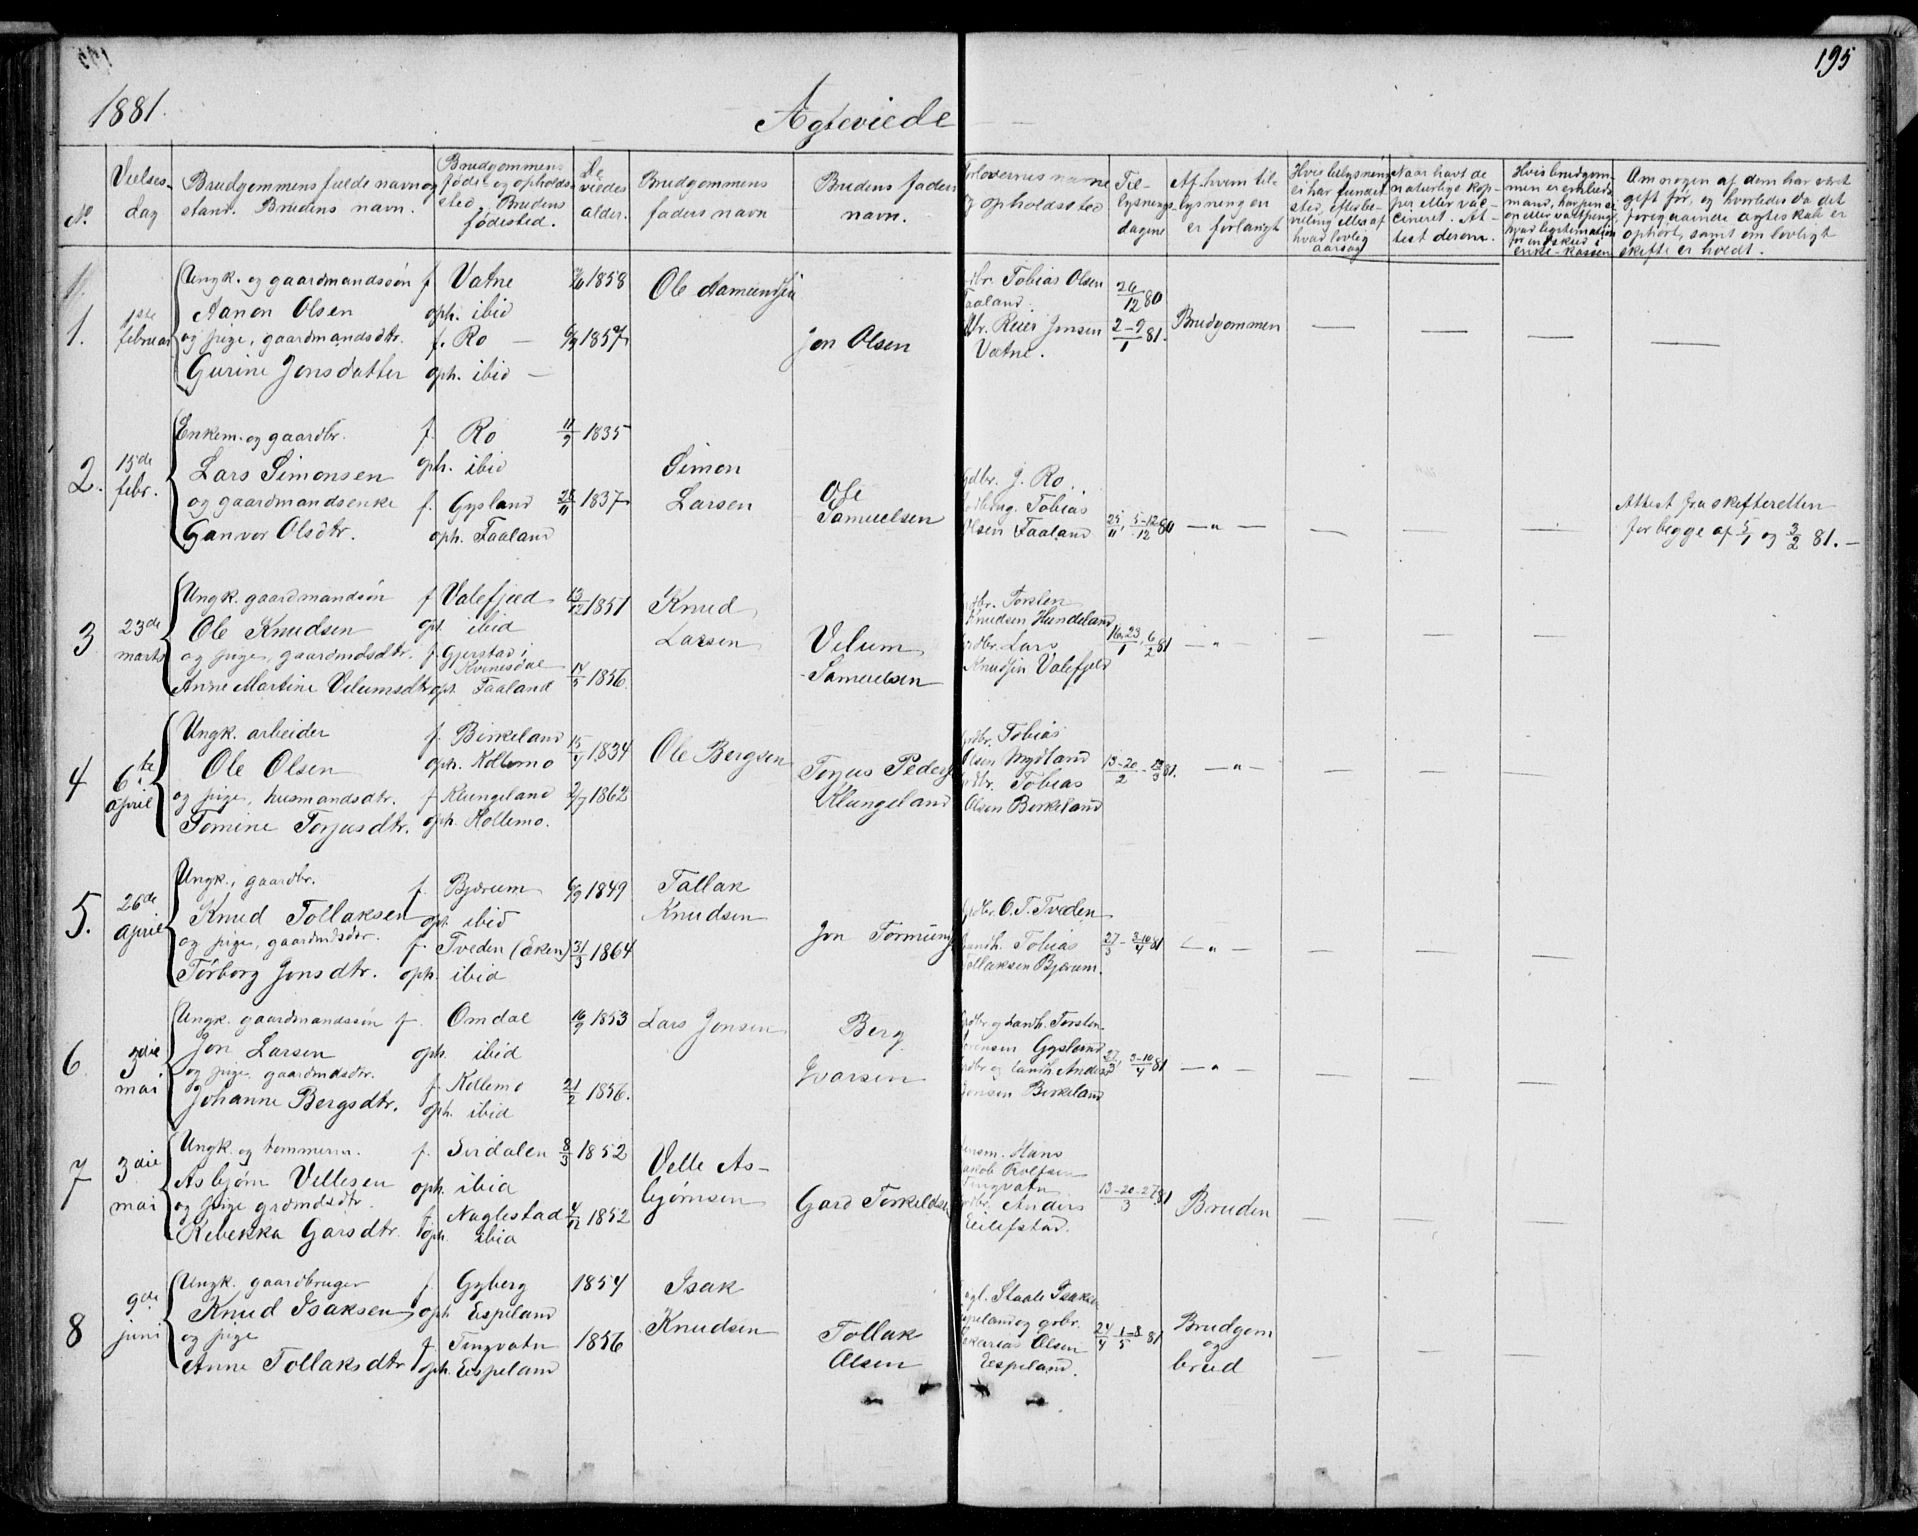 195
1881.
Agteviede
No.
Vielses-
dag
Brudgommens fulde navn og
stand. Brudens navn.
Brudgommens
føde- og opholds-
sted. Brudens
fødested.
De
viedes
alder.
Brudgommens
faders navn
Brudens faders
navn.
Forlovernes navne
og opholdssted
Til-
lysnings-
dagene
Af hvem til-
lysning er
er forlangt
Hvis tillysning
ei har fundet
sted, efterbe-
villing eller af
hvad lovlig
aarsag
Naar havt de
naturlige kop-
per eller vac-
cineret. At-
test derom.
Hvis brudgom-
men er embeds-
mand, har pensi-
on eller vartpenge,
hvad legitimation
for indskud i
enke-kassen
Om nogen af dem har været
gift før, og hvorledes da det
foregaaende ægteskab er
ophørt, samt om lovligt
skifte er holdt.
1. 1ste
februar
Ungk. og gaardmandssøn f. Vatne 1858 Ole Aamundsen
Aanen Olsen oph. ibid
og pige, gaardmandsdtr. f. Ro — 1857 Jon Olsen
Gurine Jonsdatter oph. ibid —
Gbr. Tobias Olsen
Faaland.
Gbr. Reier Jensen
Vatne.
26/12 80
2-9/1 81.
Brudgommen — — — —
2. 15de
febr.
Enkem. og gaardbr. f. Ro 11/9 1835
Lars Simonsen oph. ibid Simon
Larsen
og gaardmandsenke f. Gysland 28/11 1837 Ole
Samuelsen
Gunvor Olsdtr. oph. Faaland
Gdbr. J. Ro.
Tobias
Olsen Faaland
25/11, 5-12/12 80 —„— — — —
Attest fra skifteretten
for begge af 5/1 og 3/2 81. —
3 23de
marts
Ungk. gaardmandsøn f. Valefjed 13/12 1851 Knud
Larsen
Ole Knudsen oph. ibid
og pige, gaardmdsdtr. f. Gjerstad i
Kvinesdal
Anne Martine Velumsdtr oph. Faaland 14/3 1856. Velum
Samuelsen
Gdbr. Torsten
Knudsen Hundeland
Grdbr. Lars
Knudsen Valefjeld
16, 23/1, 6/2 81 —„— — — — —
4 6te
april
Ungk. arbeider f. Birkeland 15/4 1834 Ole Bergsen
Ole Olsen oph. Kollemo
og pige, husmandsdtr. f Klungeland 2/7 1862 Torjus Peders.
Klungeland
Tomine Torjusdtr. oph. Kollemo.
Grdbr. Tobias
Olsen Mydland
Grdbr. Tobias
Olsen Berkeland
13-20/2 - 13/3 81. —„— — — — —
5. 26de
april
Ungk., gaardbr. f. Bjærum 6/9 1849 Tallak
Knudsen
Knud Tollaksen oph. ibid
og pige, gaardmdsdtr. f Tveden (Eken) 31/3 1864 Jon Tormunds
Torborg Jonsdtr. oph. ibid
Grdbr. O. T. Tveden
Landh. Tobias
Tollaksen Bjærum.
27/3 - 3-10/4 81 —„— — — — —
6 3die
mai
Ungk. gaardmandssøn f. Omdal 16/9 1853 Lars Jonsen
Jon Larsen oph. ibid
og pige gaardmdsdtr. f. Kollemo 21/2 1856. Berg
Ivarsen
Johanne Bergsdtr. oph. ibid
Grdbr og Landh. Torsten
Sørensen Gysland
Grdbr og Landh Anders
Jensen Birkeland
27/3, 3-10/4 81 —„— — — — —
7 3die
mai
Ungk. og tømmerm. f. Sirdalen 8/3 1852 Velle As-
bjørnsen
Asbjørn Vellesen oph. ibid
og pige grdmdsdtr. f Naglestad 4/12 1852 Gard Torkeldsen
Rebekka Garsdtr. oph. ibid
Lensm. Hans
Jakob Rolfsen
Tingvatn
Grdbr. Anders
Eilefstad.
13-20-27/3 81 Bruden — — — —
8 9de
juni
Ungk. gaardbruger f Gyberg 1854 Isak
Knudsen
Knud Isaksen oph Espeland
og pige f. Tingvatn 1856 Tollak
Olsen
Anne Tollaksdtr oph. Espeland
Staale Isaksen
Espeland og grbr.
Sakarias Olsen
Espeland.
24/4 1-8/5 81 Brudgom
og
brud — — — —